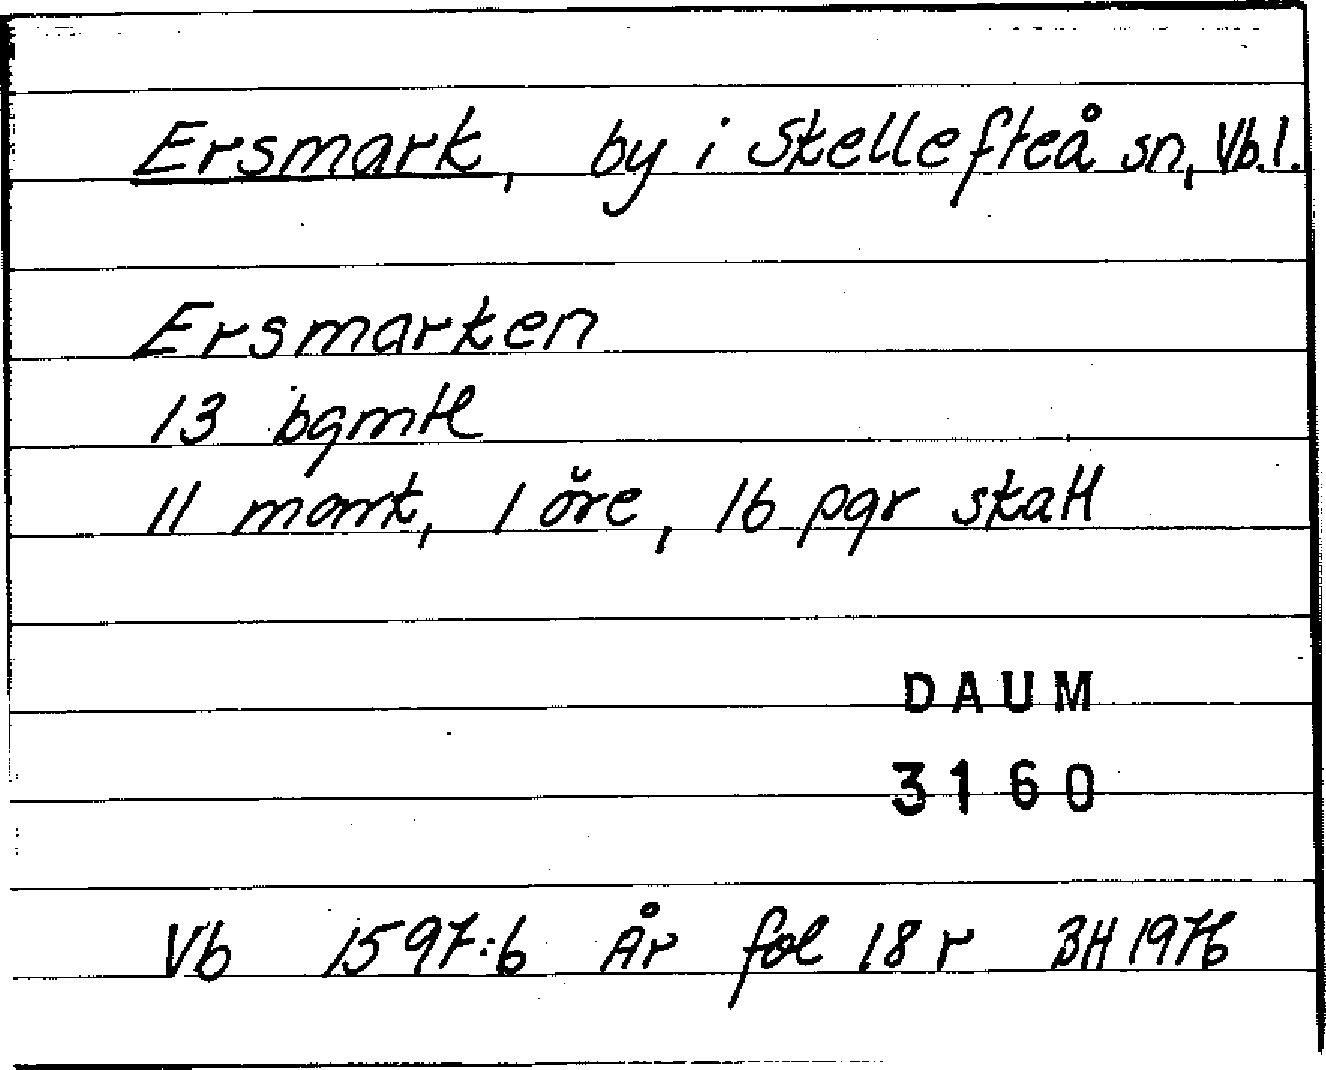 Ersmark, by i Skellefteå sn, Vb.l.
Ersmarken
13 bgmtl
11 mark, 1 öre, 16 pgr skatt
DAUM
3160
Vb 1597:6 År fol 18 r BH 1976